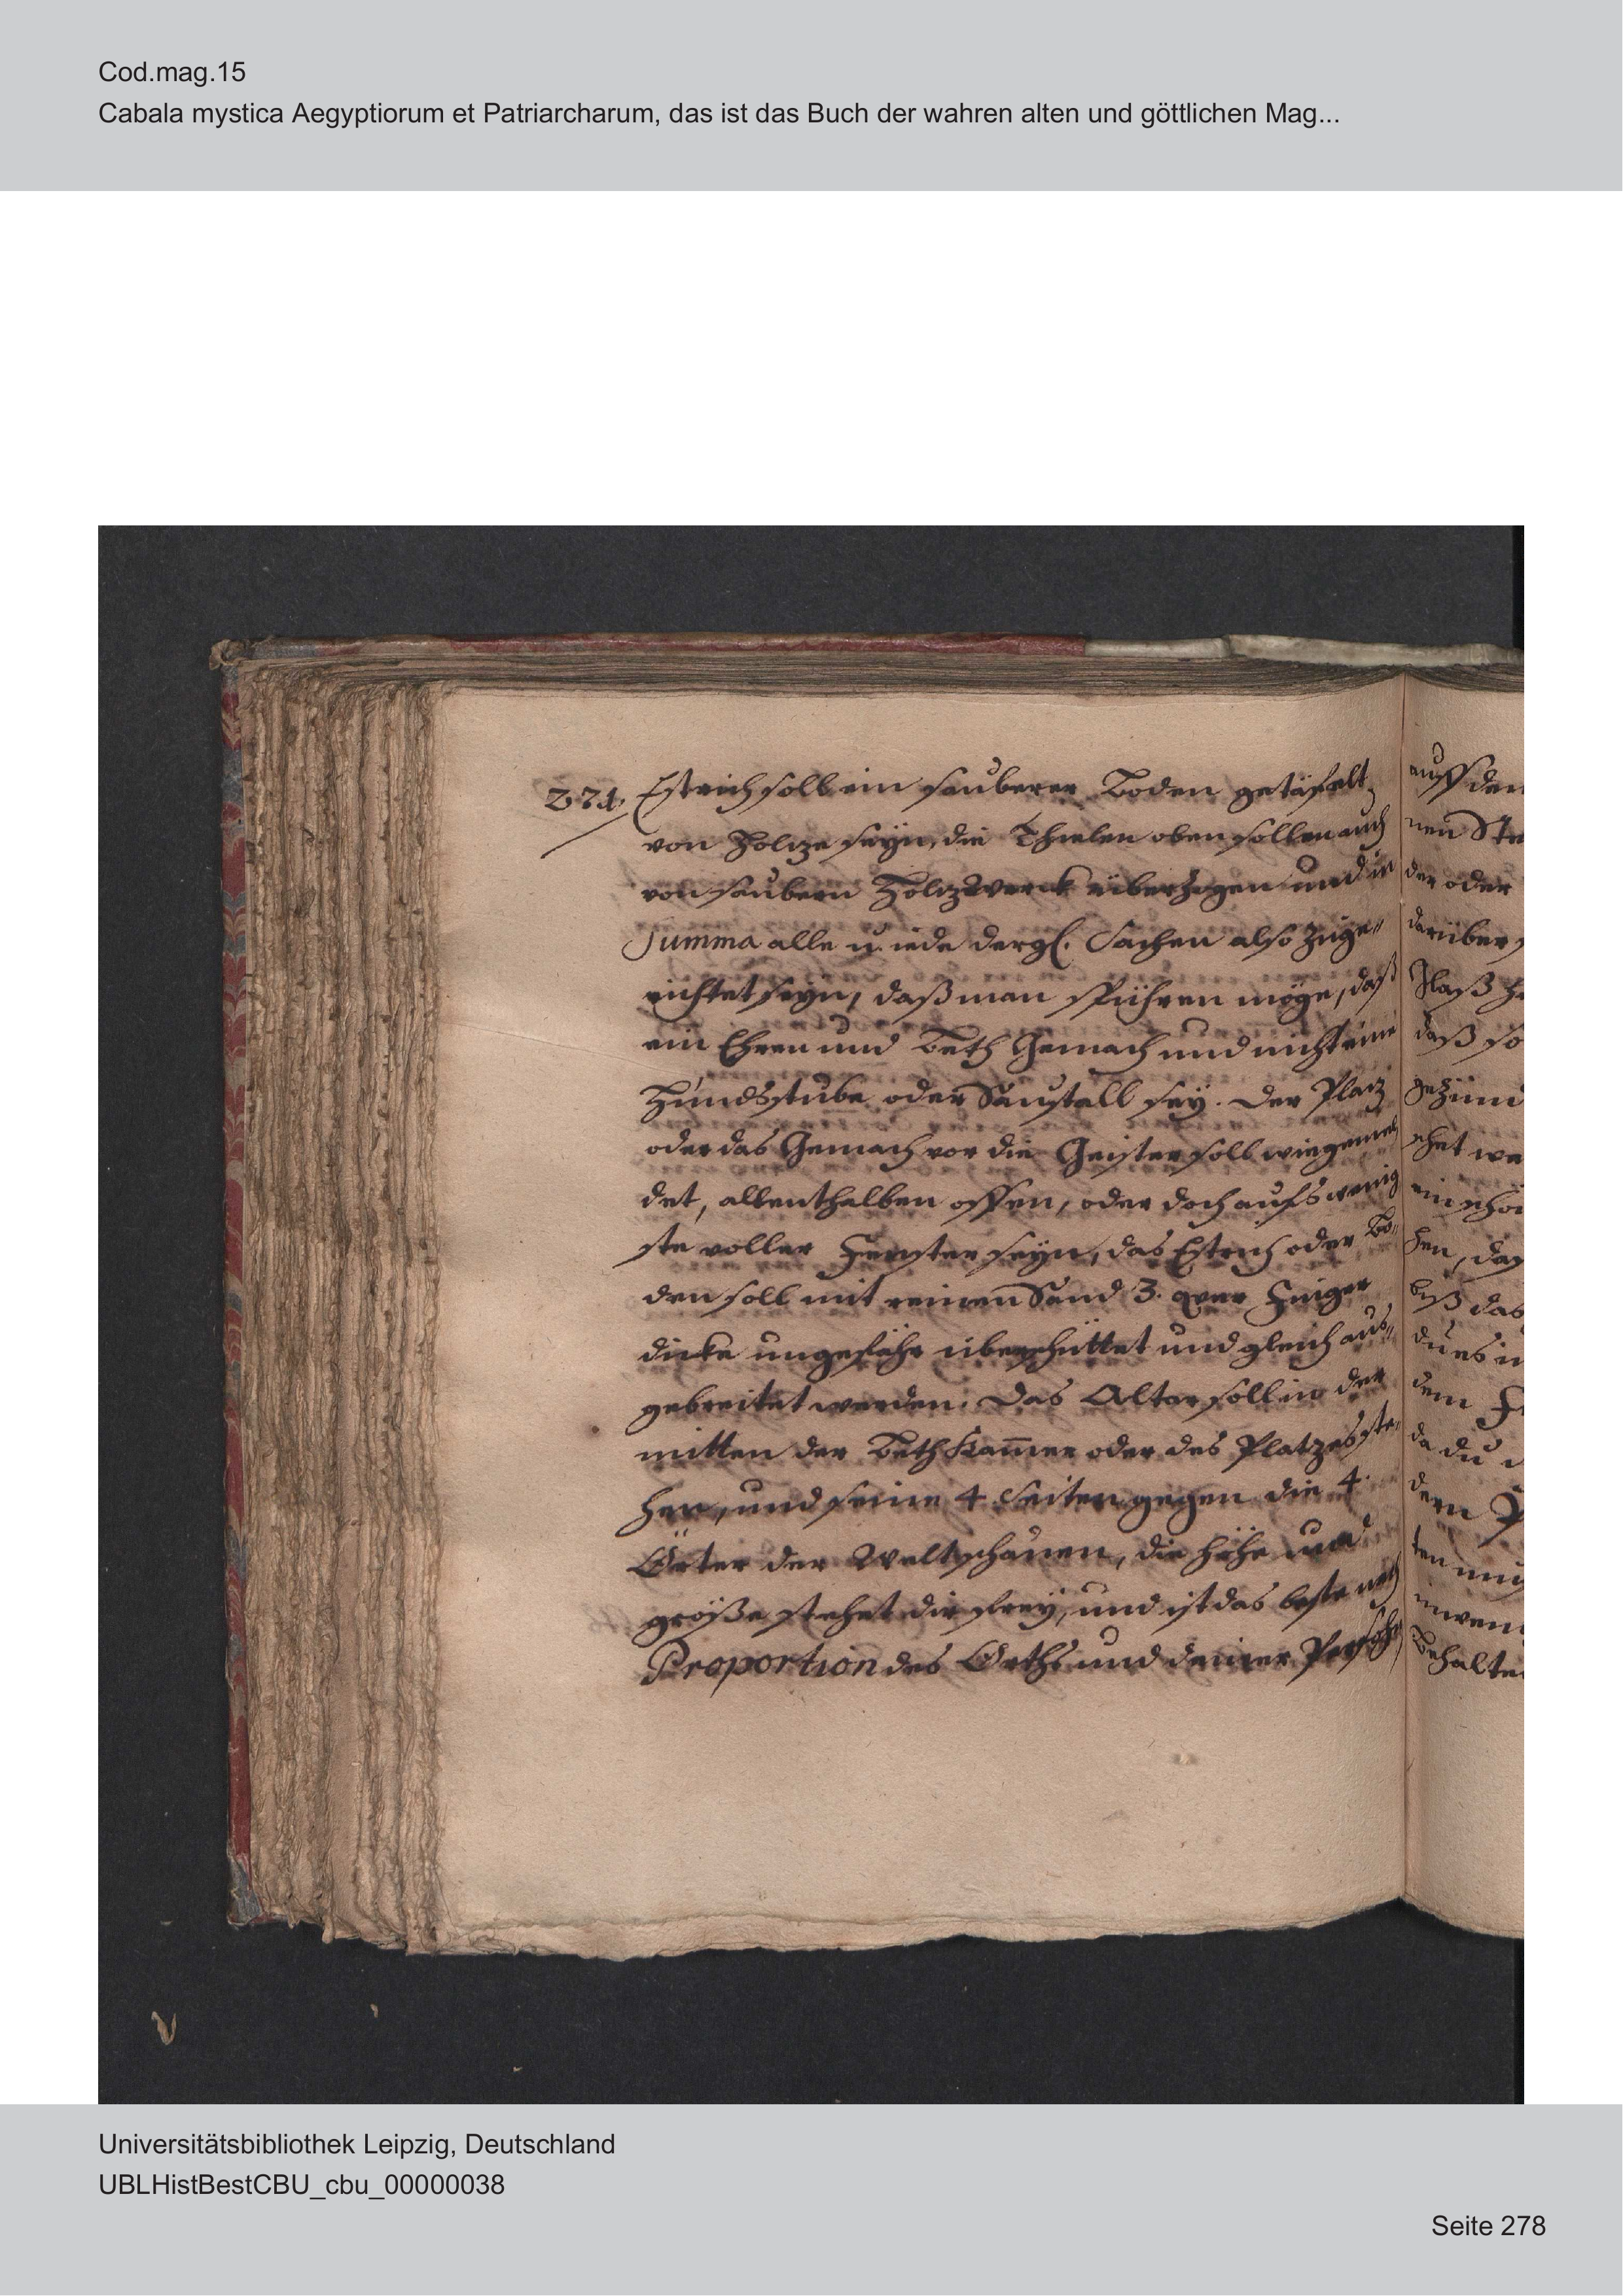 Cod.mag.15
Cabala mystica Aegyptiorum et Patriarcharum, das ist das Buch der wahren alten und göttlichen Mag...
274.
Estrich soll ein sauberer Boden getäfelt
von Holze seyn, die Thielen oben sollen auch
von saubern Holzwerck überzogen und in
Summa alle u. iede dergl. Sachen also zuge„
richtet seyn, daß man spühren möge, daß
ein Ehren und Beth Gemach und nicht eine
Hundsstube oder Säustall sey. Der Platz
oder das Gemach vor die Geister soll wie gemel
det, allenthalben offen, oder doch aufs wenig
ste voller Fenster seyn, das Estrich oder Bo„
den soll mit reinen Sand 3. quer Finger
dicke ungefähr überschüttet und gleich aus„
gebreitet werden. Das Altar soll in der
mitten der Beth Kam̅er oder des Platzes ste„
hen, und seine 4 Seiten gegen die 4.
Örter der Welt schauen, die höhe und
größe stehet dir frey, und ist das beste nach
Proportion des Orths und deiner Persohn
auff den
nen Ste
der oder
darüber
daß so
gezünd
chet we
ein schö
hen, das
biß das
du es in
dem
da du
dern
ten
inwen
behalte
Universitätsbibliothek Leipzig, Deutschland
UBLHistBestCBU_cbu_00000038
Seite 278